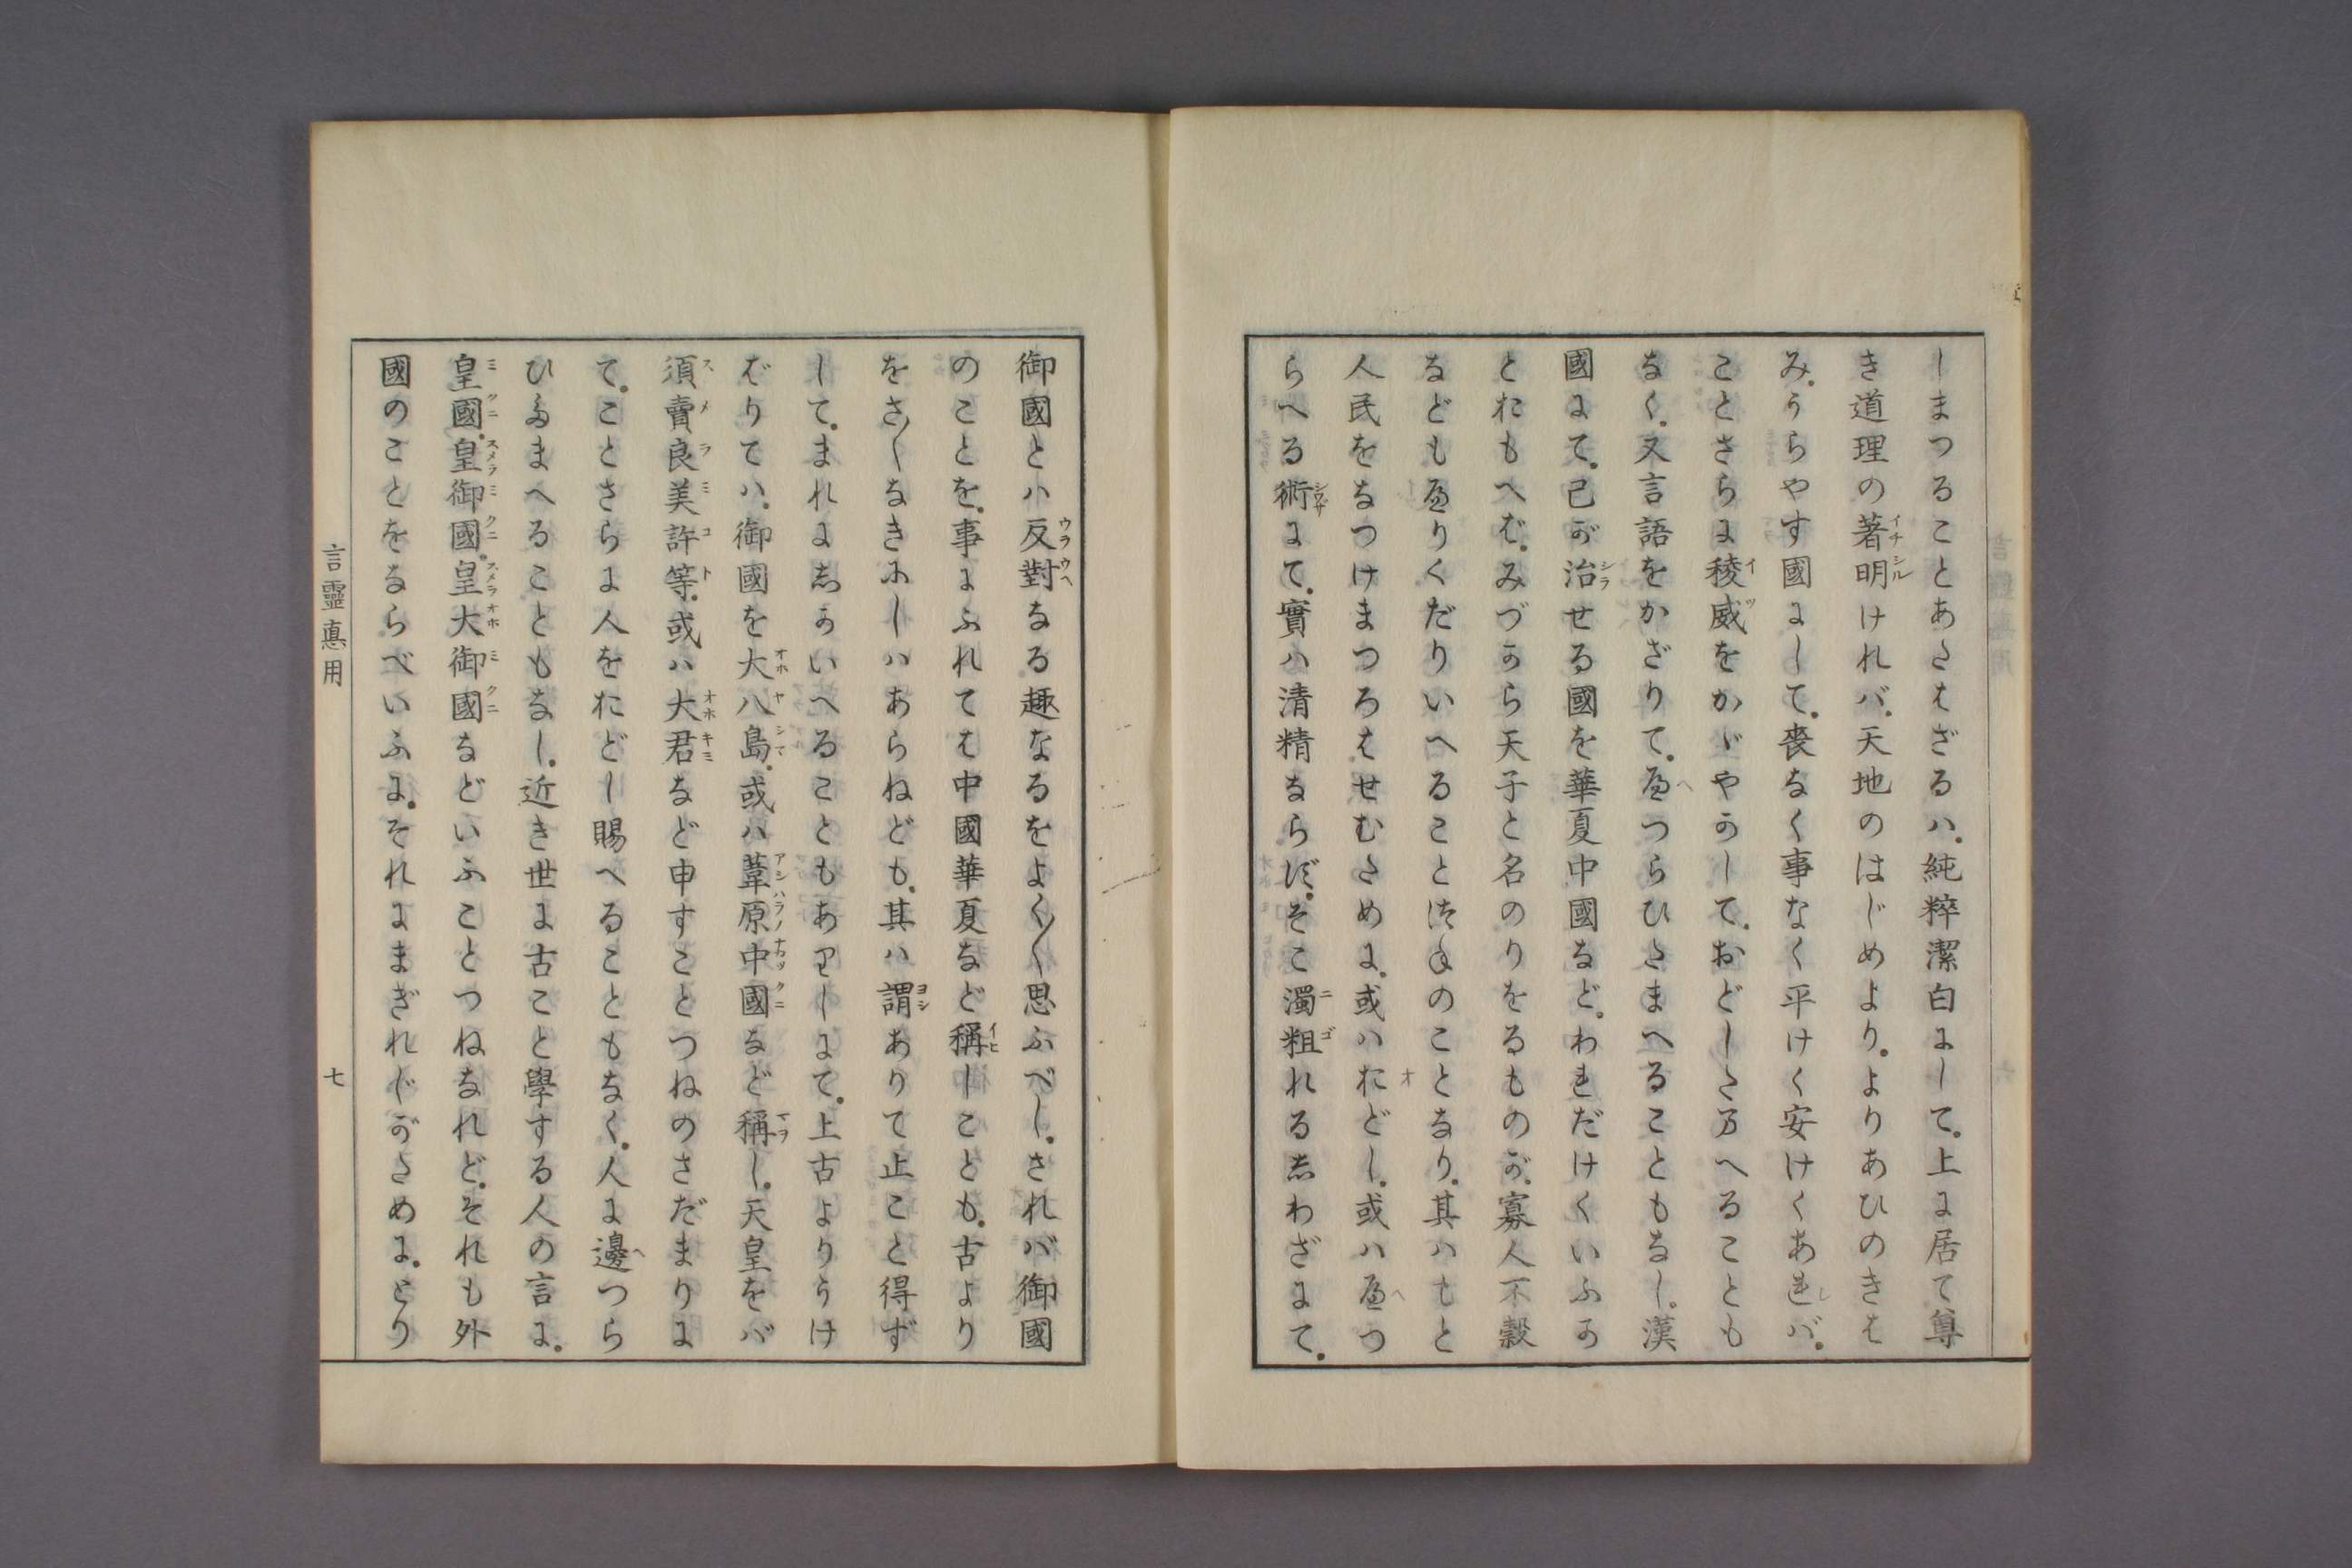 しまつることあたはざるハ。純粹潔白にして。上に居て尊
き道理の著明けれバ。天地のはじめより。よりあひのきは
み。うらやす國にして。喪なく事なく平けく安けくあれバ。
ことさらに稜威をかゞやかして。おどしたまへることも
なく。又言語をかざりて。へつらひたまへることもなし。漢
國にて。己が治せる國を華夏中國など。われだけくいふか
とおもへば。みづから天子と名のりをるものが。寡人不穀
などもへりくだりいへることつねのことなり。其ハもと
人民をなつけまつろはせむために。或ハおどし。或ハへつ
らへる術にて。實ハ清精ならず。そこ濁粗れるしわざにて。
御國とハ反對なる趣なるをよく〳〵思ふべし。されバ御國
のことを。事にふれては中國華夏など稱しことも。古より
をさ〳〵なきにしハあらねども。其ハ謂ありて止こと得ず
して。まれにしかいへることもありしにて。上古よりうけ
ばりてハ。御國を大八島。或ハ葦原中國など稱し。天皇をバ
須賣良美許等。或ハ大君など申すことつねのさだまりに
て。ことさらに人をおどし賜へることもなく。人に邊つら
ひたまへることもなし。近き世に古こと學する人の言に。
皇國。皇御國。皇大御國などいふことつねなれど。それも外
國のことをならべいふに。それにまぎれじがために。とり
言靈真用
七